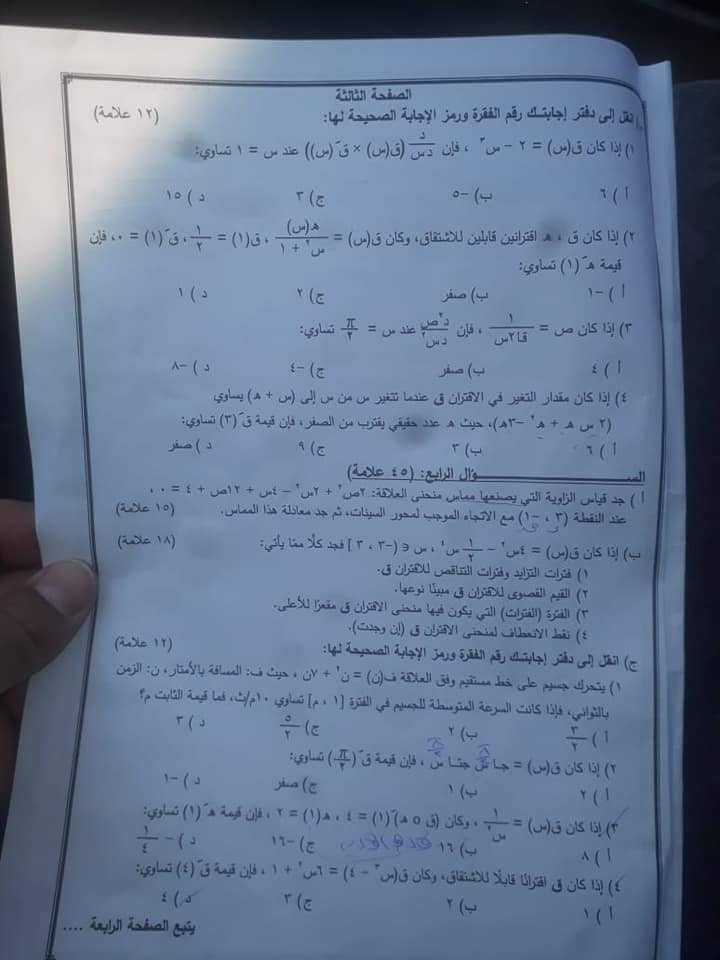 الصفحة الثالثة
انقل إلى دفتر إجابتك رقم الفقرة ورمز الإجابة الصحيحة لها: (١٢ علامة)
١) إذا كان ق(س) = ٢ - س٣ ، فإن د/دس (ق(س) × قَ(س)) عند س = ١ تساوي:
أ ) ٦ ب) -٥ ج) ٣ د ) ١٥
٢) إذا كان ق ، هـ اقترانين قابلين للاشتقاق، وكان ق(س) = هـ(س)/(س٢ + ١) ، ق(١) = ١/٢ ، قَ(١) = ٠، فإن
قيمة هـَ(١) تساوي:
أ ) -١ ب) صفر ج) ٢ د ) ١
٣) إذا كان ص = ١/قا٢س ، فإن د٢ص/دس٢ عند س = π/٢ تساوي:
أ ) ٤ ب) صفر ج) -٤ د ) -٨
٤) إذا كان مقدار التغير في الاقتران ق عندما تتغير س من س إلى (س + هـ) يساوي
(٢ س هـ + هـ٢ -٣هـ)، حيث هـ عدد حقيقي يقترب من الصفر، فإن قيمة قَ(٣) تساوي:
أ ) ٦ ب) ٣ ج) ٩ د ) صفر
الســـؤال الرابع: (٤٥ علامة)
أ ) جد قياس الزاوية التي يصنعها مماس منحنى العلاقة: ٢ص٢ + ٢س٢ - ٤س + ١٢ص + ٤ = ٠ ،
عند النقطة (٣ ، -١) مع الاتجاه الموجب لمحور السينات، ثم جد معادلة هذا المماس. (١٥ علامة)
ب) إذا كان ق(س) = ٤س٢ - ١/٢ س٤ ، س ∋ [-٣ ، ٣] فجد كلًا ممّا يأتي: (١٨ علامة)
١) فترات التزايد وفترات التناقص للاقتران ق.
٢) القيم القصوى للاقتران ق مبينًا نوعها.
٣) الفترة (الفترات) التي يكون فيها منحنى الاقتران ق مقعرًا للأعلى.
٤) نقط الانعطاف لمنحنى الاقتران ق (إن وجدت).
ج) انقل إلى دفتر إجابتك رقم الفقرة ورمز الإجابة الصحيحة لها: (١٢ علامة)
١) يتحرك جسيم على خط مستقيم وفق العلاقة ف(ن) = ن٢ + ٧ن ، حيث ف: المسافة بالأمتار، ن: الزمن
بالثواني، فإذا كانت السرعة المتوسطة للجسيم في الفترة [١ ، م] تساوي ١٠م/ث، فما قيمة الثابت م؟
أ ) ٣/٢ ب) ٢ ج) ٥/٢ د ) ٣
٢) إذا كان ق(س) = جا س جتا س ، فإن قيمة قَ(π/٢) تساوي:
أ ) ٢ ب) ١ ج) صفر د ) -١
٣) إذا كان ق(س) = ١/س٢ ، وكان (ق ο هـ)َ(١) = ٤ ، هـ(١) = ٢ ، فإن قيمة هـَ(١) تساوي:
أ ) ٨ ب) ١٦ ج) -١٦ د ) -١/٤
٤) إذا كان ق اقترانًا قابلًا للاشتقاق، وكان ق(س٣ - ٤) = ٦س٢ + ١ ، فإن قيمة قَ(٤) تساوي:
أ ) ١ ب) ٢ ج) ٣ د ) ٤
يتبع الصفحة الرابعة ....